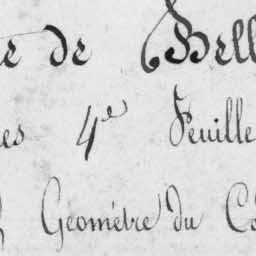 de Bell
4e Feuille
Géomètre du